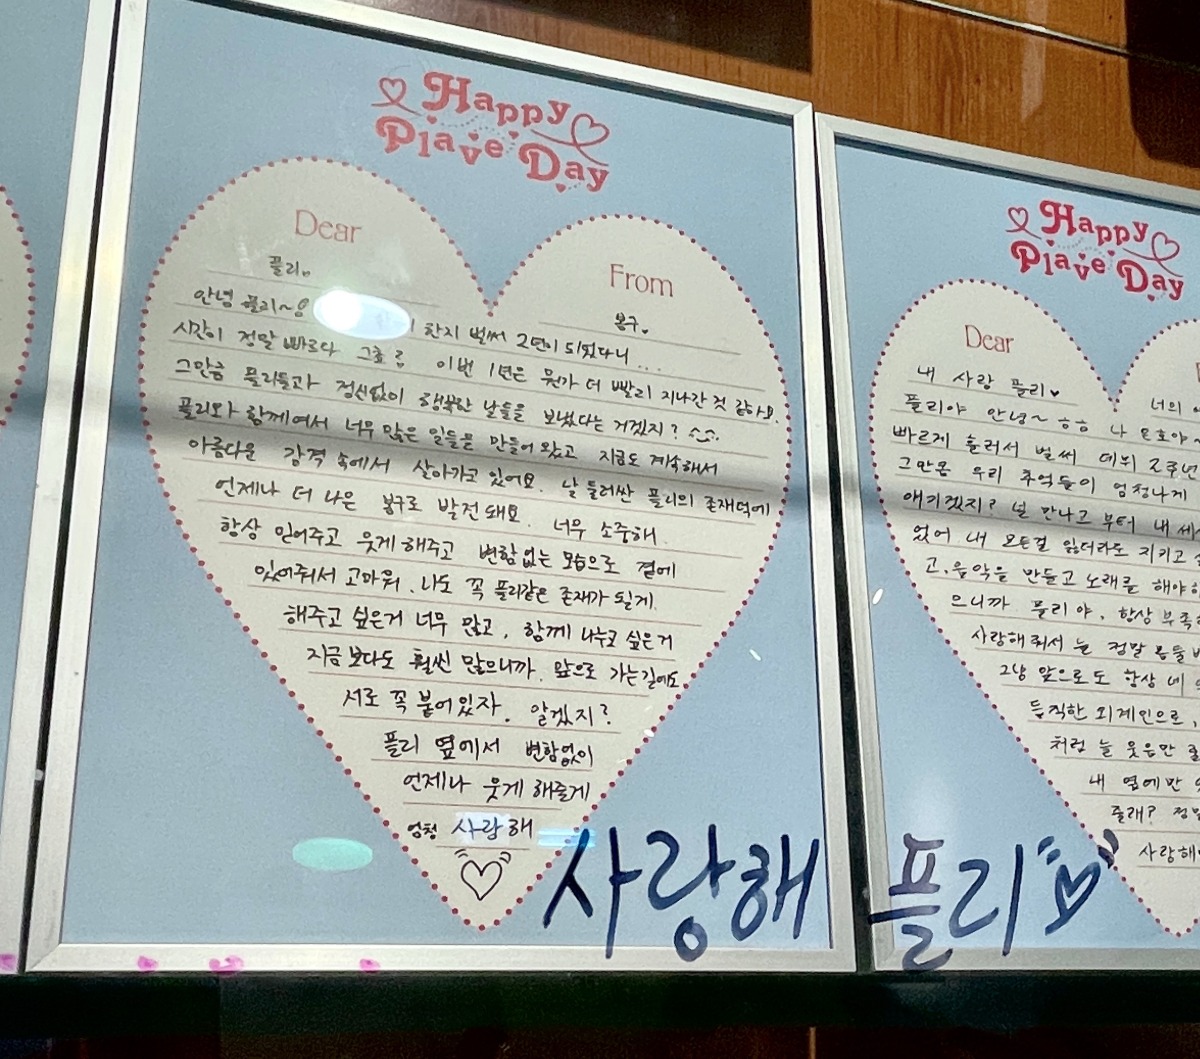 Happy
Plave Day
Dear
플리♥
From
봉구♥
안녕 플리~! 한지 벌써 2년이 되었다니...
시간이 정말 빠르다 그죠? 이번 1년은 뭔가 더 빨리 지나간 것 같아요
그만큼 플리들과 정신없이 행복한 날들을 보냈다는 거겠지?
플리와 함께여서 너무 많은 일들을 만들어 왔고 지금도 계속해서
아름다운 감격 속에서 살아가고 있어요. 날 둘러싼 플리의 존재덕에
언제나 더 나은 봉구로 발전돼요. 너무 소중해.
항상 믿어주고 웃게 해주고 변함없는 모습으로 곁에
있어줘서 고마워. 나도 꼭 플리같은 존재가 될게.
해주고 싶은거 너무 많고, 함께 나누고 싶은거
지금보다도 훨씬 많으니까. 앞으로 가는길에도
서로 꼭 붙어있자. 알겠지?
플리 옆에서 변함없이
언제나 웃게 해줄게
엄청 사랑해
Happy
Plave Day
Dear
내 사랑 플리♥
너의
플리야 안녕~ ㅎㅎ 나 은호야
빠르게 흘러서 벌써 데뷔 2주년
그만큼 우리 추억들이 엄청나게
얘기겠지? 널 만나고 부터 내 세
있어 내 모든걸 잃더라도 지키고
고, 음악을 만들고 노래를 해야하
으니까 플리야, 항상 부족
사랑해줘서 늘 정말
그냥 앞으로도 항상 네
듬직한 외계인으로,
처럼 늘 웃음만
내 옆에만
줄래? 정말
사랑해
사랑해 플리♡